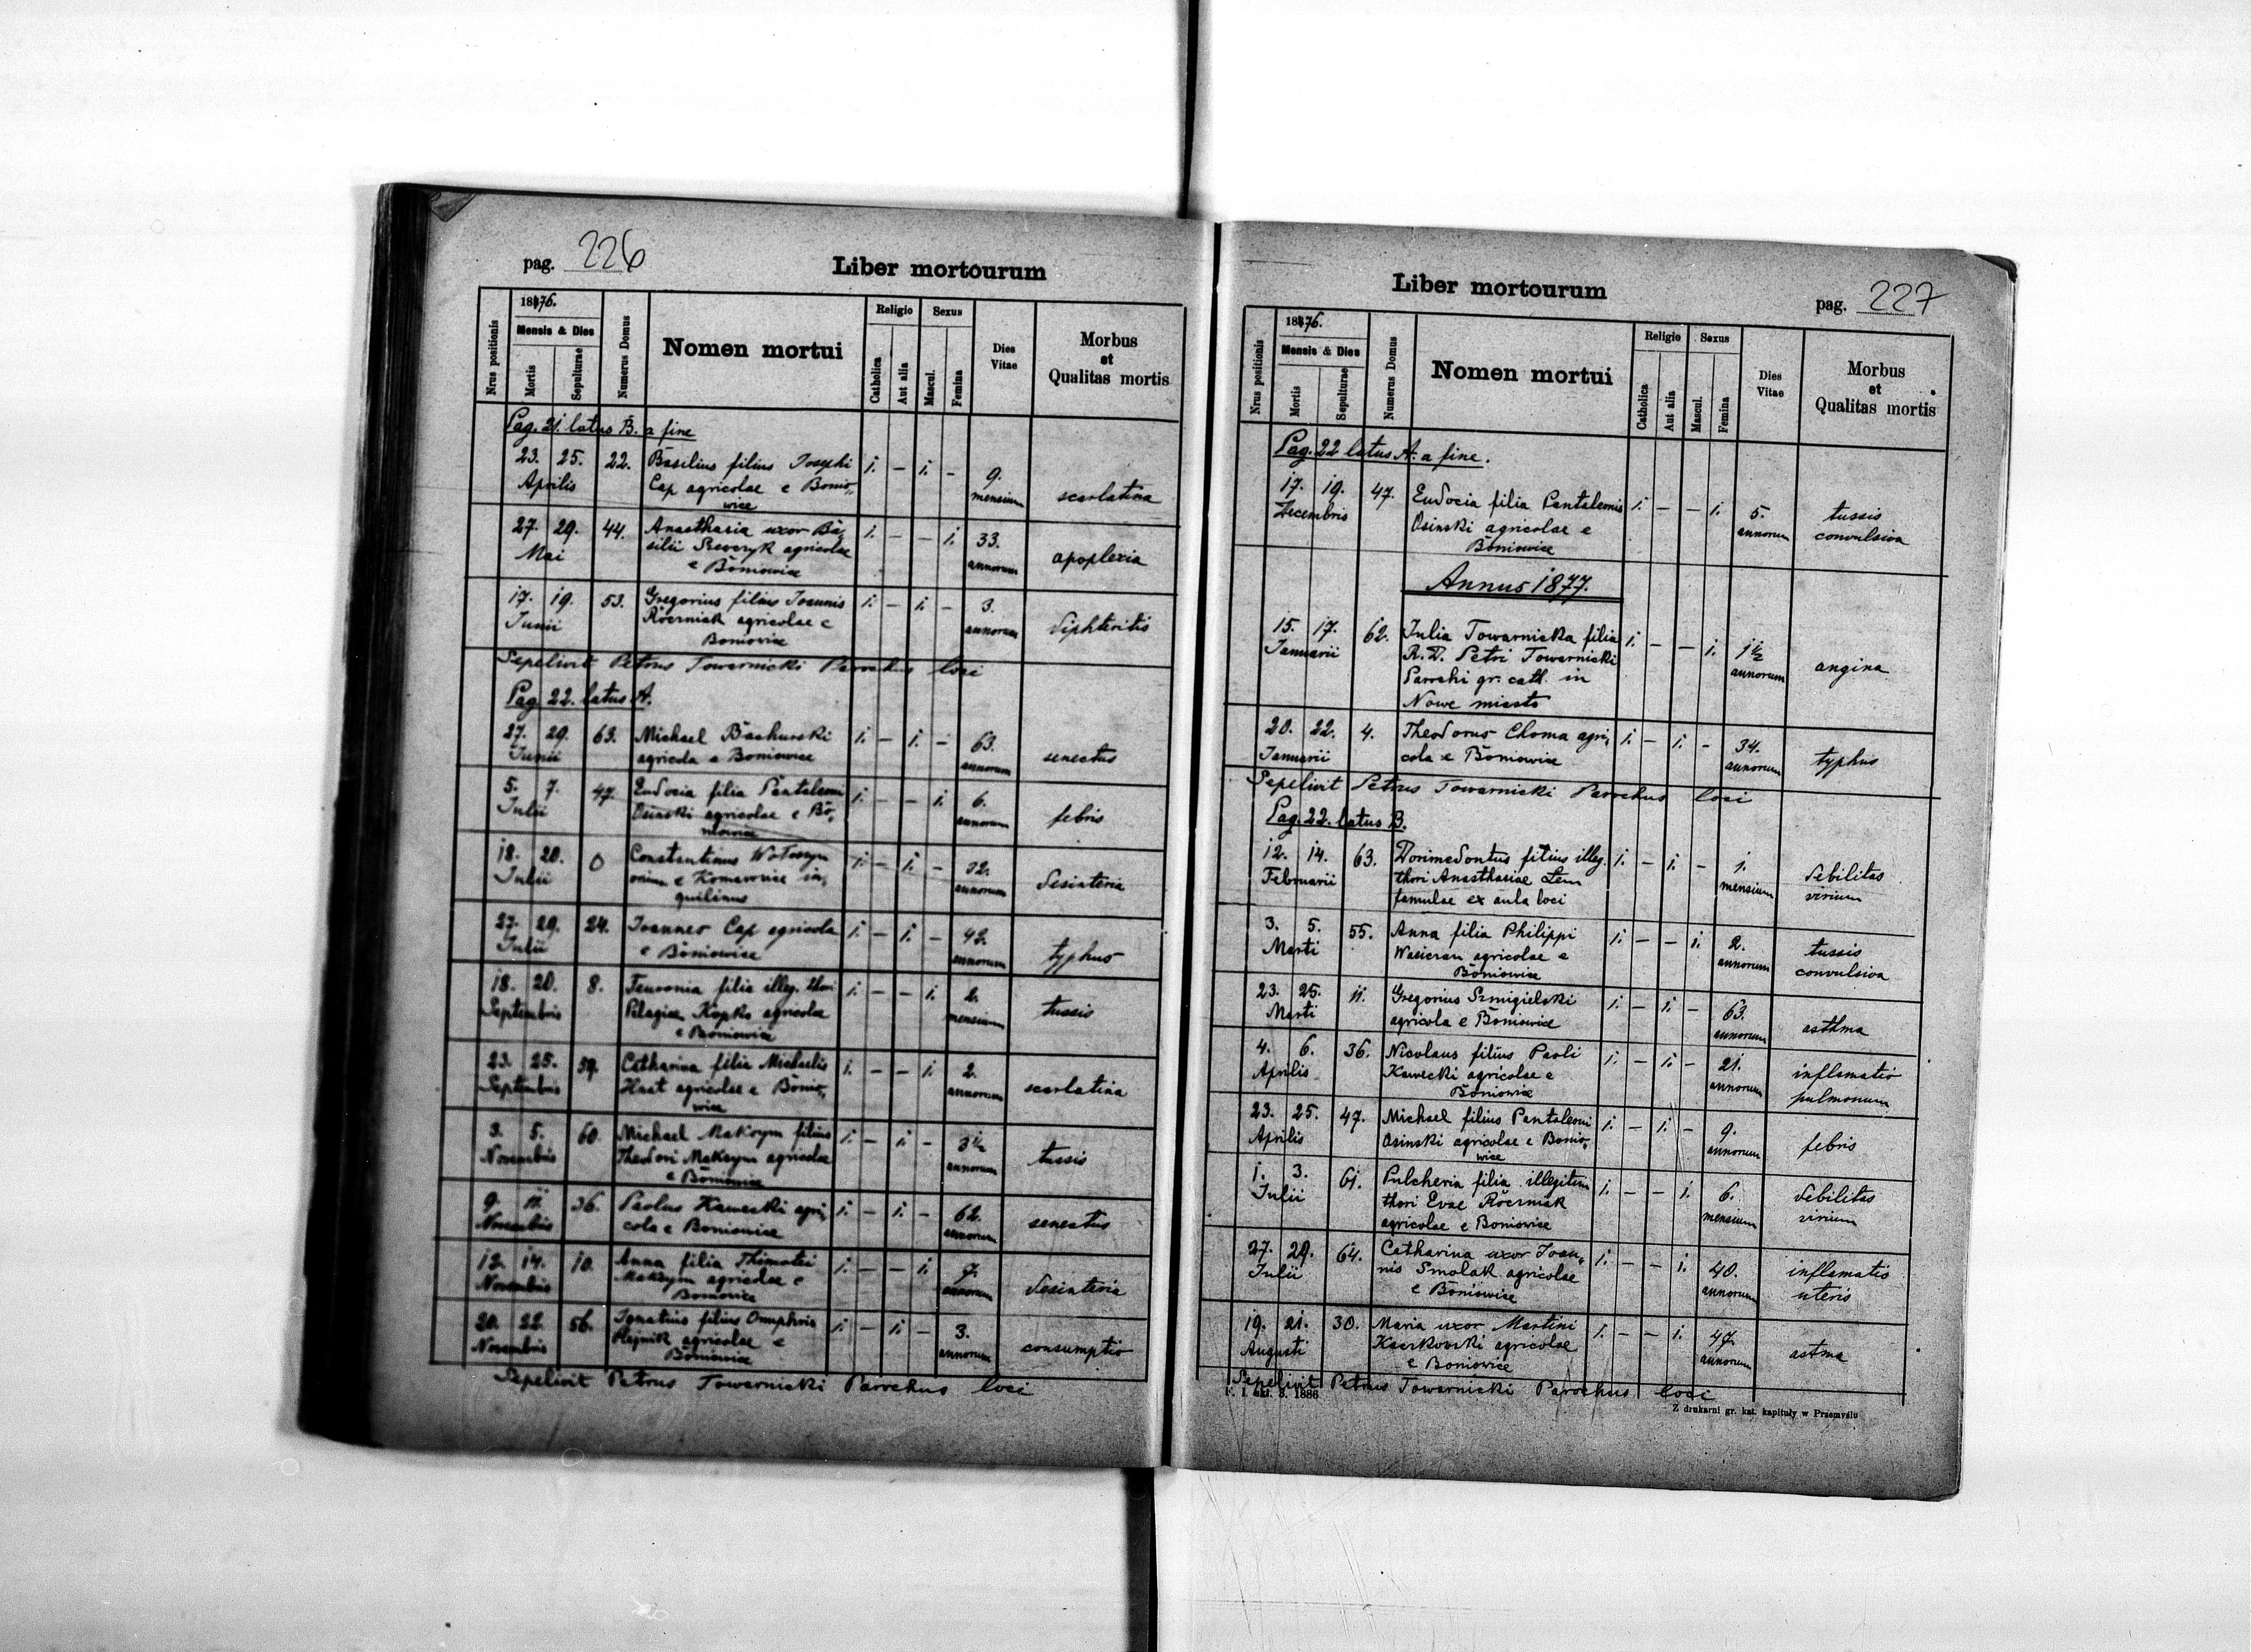 pag. 226
Liber mortourum
Nrus positionis
1876.
Mensis & Dies
Mortis
Sepulturae
Numerus Domus
Nomen mortui
Religio
Catholica
Aut alia
Sexus
Mascul.
Femina
Dies
Vitae
Morbus
et
Qualitas mortis
Pag. 21. latus B. a fine
23. 25. 22. Basilius filius Josephi 1. – 1. – 9.
Aprilis Cap agricolae e Bonio„ mensium scarlatina
wice
27. 29. 44. Anasthasia uxor Ba„ 1. – – 1. 33.
Mai silii Szewczyk agricolae annorum apoplexia
e Boniowice
17. 19. 53. Gregorius filius Joannis 1. – 1. – 3.
Junii agricolae e annorum diphteritis
Boniowice
Sepelivit Petrus Towarnicki Parochus loci
Pag. 22. latus A.
27. 29. 63. Michael Bachurski 1. – 1. – 63.
Junii agricola e Boniowice annorum senectus
5. 7. 47. Eudocia filia Pantaleoni 1. – – 1. 6.
Julii Osinski agricolae e Bo„ annorum febris
niowice
18. 20. 0 Constantinus Wołoszyn 1. – 1. – 32.
Julii e Komarowice in„ annorum desinteria
quilinus
27. 29. 24. Joannes Cap agricola 1. – 1. – 43.
Julii e Boniowice annorum typhus
18. 20. 8. Feuronia filia illeg. thori 1. – – 1. 2.
Septembris Pelagiae Kopko agricolae mensium tussis
e Boniowice
23. 25. 59. Catharina filia Michaelis 1. – – 1. 2.
Septembris Hnat agricolae e Bonio„ annorum scarlatina
wice
3. 5. 60. Michael Maksym filius 1. – 1. – 3½
Novembris Theodori Maksym agricolae annorum tussis
e Boniowice
9. 11. 36. Paolus Kawecki agri„ 1. – 1. – 62.
Novembris cola e Boniowice annorum senectus
12. 14. 10. Anna filia Thimotei 1. – – 1. 7.
Novembris Maksym agricolae e annorum desinteria
Boniowice
20. 22. 56. Ignatius filius Onuphrii 1. – 1. – 3.
Novembris Olejnik agricolae e annorum consumptio
Boniowice
Sepelivit Petrus Towarnicki Parochus loci
Liber mortourum
pag. 227
Nrus positionis
1876.
Mensis & Dies
Mortis
Sepulturae
Numerus Domus
Nomen mortui
Religio
Catholica
Aut alia
Sexus
Mascul.
Femina
Dies
Vitae
Morbus
et
Qualitas mortis
Pag. 22 latus A. a fine.
17. 19. 47. Eudocia filia Pantaleonis 1. – – 1. 5. tussis
Decembris Osinski agricolae e annorum convulsiva
Boniowice
Annus 1877.
15. 17. 62. Julia Towarnicka filia 1. – – 1. 1½
Januarii R. D. Petri Towarnicki annorum angina
Parochi gr. cath. in
Nowe miasto
20. 22. 4. Theodorus Choma agri„ 1. – 1. – 34.
Januarii cola e Boniowice annorum typhus
Sepelivit Petrus Towarnicki Parochus loci
Pag. 22. latus B.
12. 14. 63. Dorimedontus filius illeg. 1. – 1. – 1. debilitas
Februarii thori Anasthasiae mensium virium
famulae ex aula loci
3. 5. 55. Anna filia Philippi 1. – – 1. 2. tussis
Marti agricolae e annorum convulsiva
Boniowice
23. 25. 11. Gregorius Szmigielski 1. – 1. – 63.
Marti agricola e Boniowice annorum asthma
4. 6. 36. Nicolaus filius Paoli 1. – 1. – 21. inflamatio
Aprilis Kawecki agricolae e annorum pulmonum
Boniowice
23. 25. 47. Michael filius Pantaleoni 1. – 1. – 9.
Aprilis Osinski agricolae e Bonio„ annorum febris
wice
1. 3. 61. Pulcheria filia illegitim 1. – – 1. 6. debilitas
Julii thori Evae agricolae e Boniowice mensium virium
27. 29. 64. Catharina uxor Joan„ 1. – – 1. 40. inflamatio
Julii nis Smolak agricolae annorum uteris
e Boniowice
19. 21. 30. Maria uxor Martini 1. – – 1. 47.
Augusti Kaczkowski agricolae annorum astma
e Boniowice
Sepelivit Petrus Towarnicki Parochus loci
F. I. okt. 8. 1886
Z drukarni gr. kat. kapituły w Przemyślu